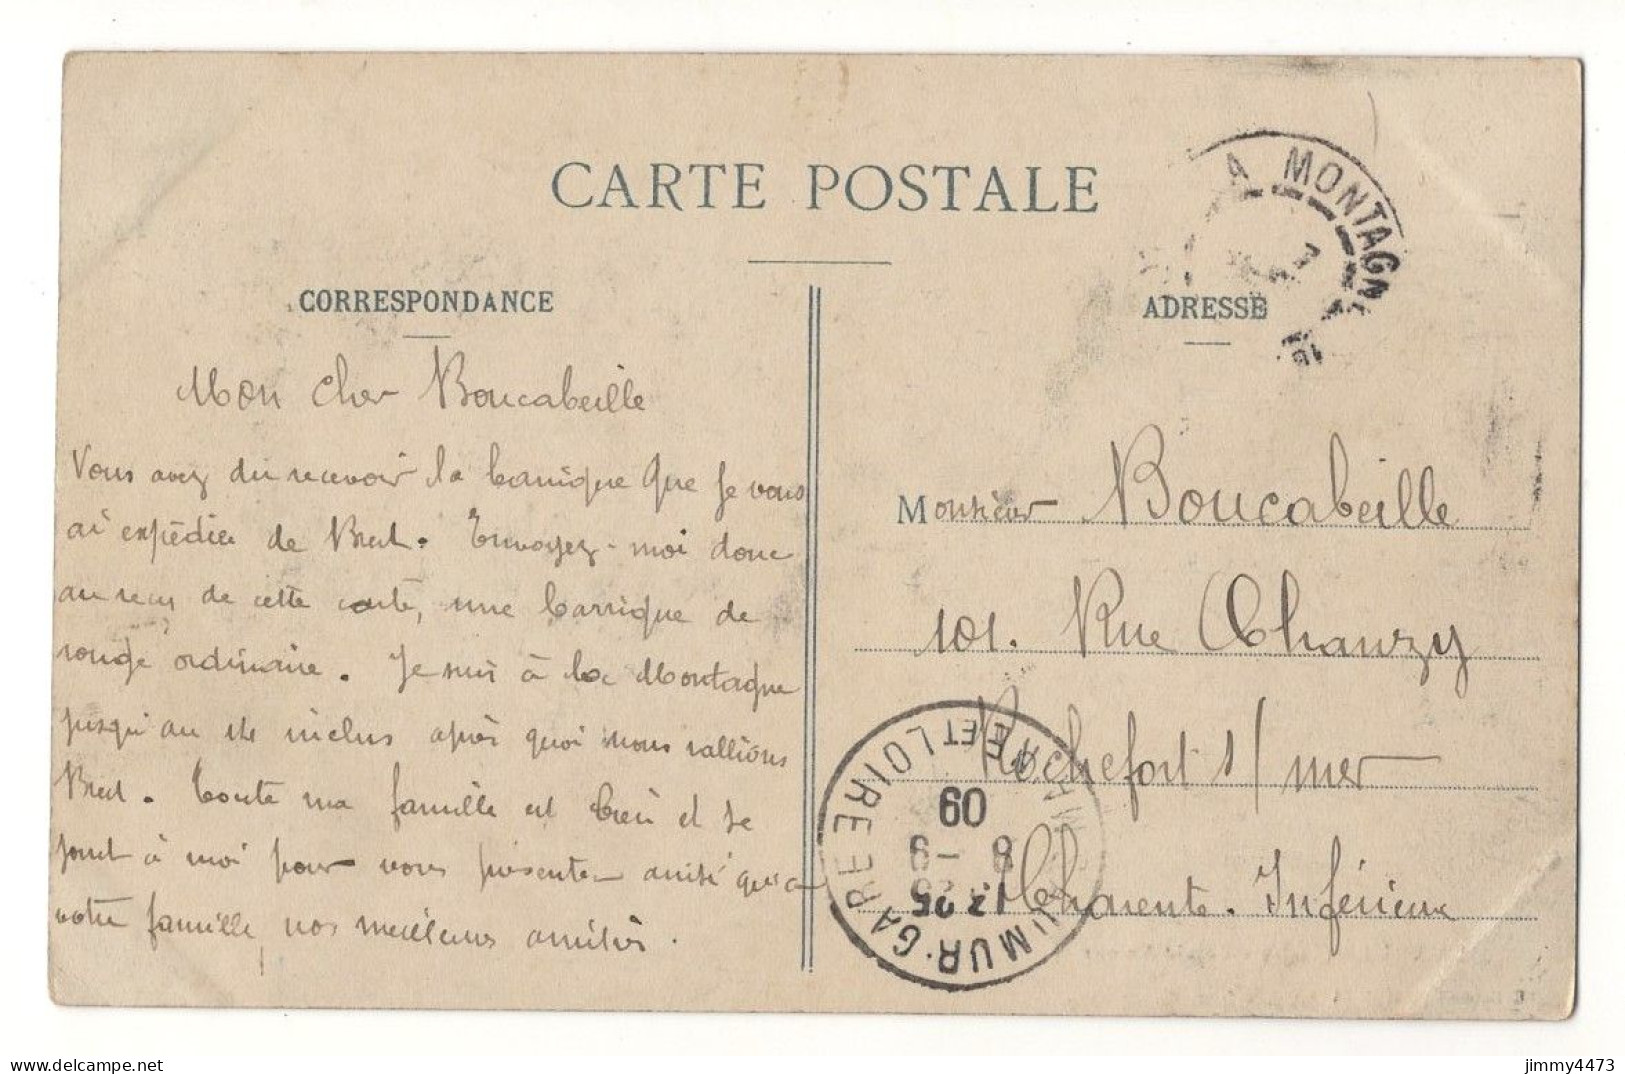 CARTE POSTALE
CORRESPONDANCE
Mon cher Boucabeille
Vous avez du recevoir la barrique que je vous
ai expédiée de Brest. Envoyez-moi donc
au reçu de cette carte, une barrique de
rouge ordinaire. Je suis à La Montagne
jusqu'au 14 inclus après quoi nous rallions
Brest. Toute ma famille est bien et se
joint à moi pour vous présenter ainsi qu'à
votre famille, nos meilleures amitiés.
ADRESSE
Monsieur Boucabeille
101. Rue Chanzy
Rochefort s/ mer
Charente-Inférieure
LA MONTAGNE
MAINE ET LOIRE
SAUMUR-GARE
12 25
8 - 9
09
jimmy4473